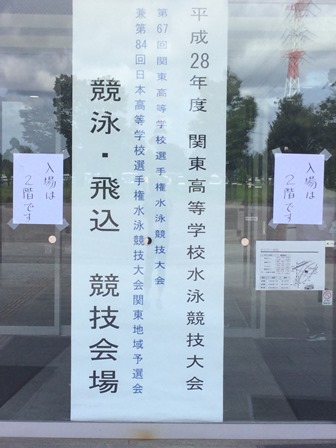 平成28年度 関東高等学校水泳競技大会
第67回関東高等学校選手権水泳競技大会
兼第84回日本高等学校選手権水泳競技大会関東地域予選会
競泳・飛込 競技会場
入場は
2階です
入場は
2階です